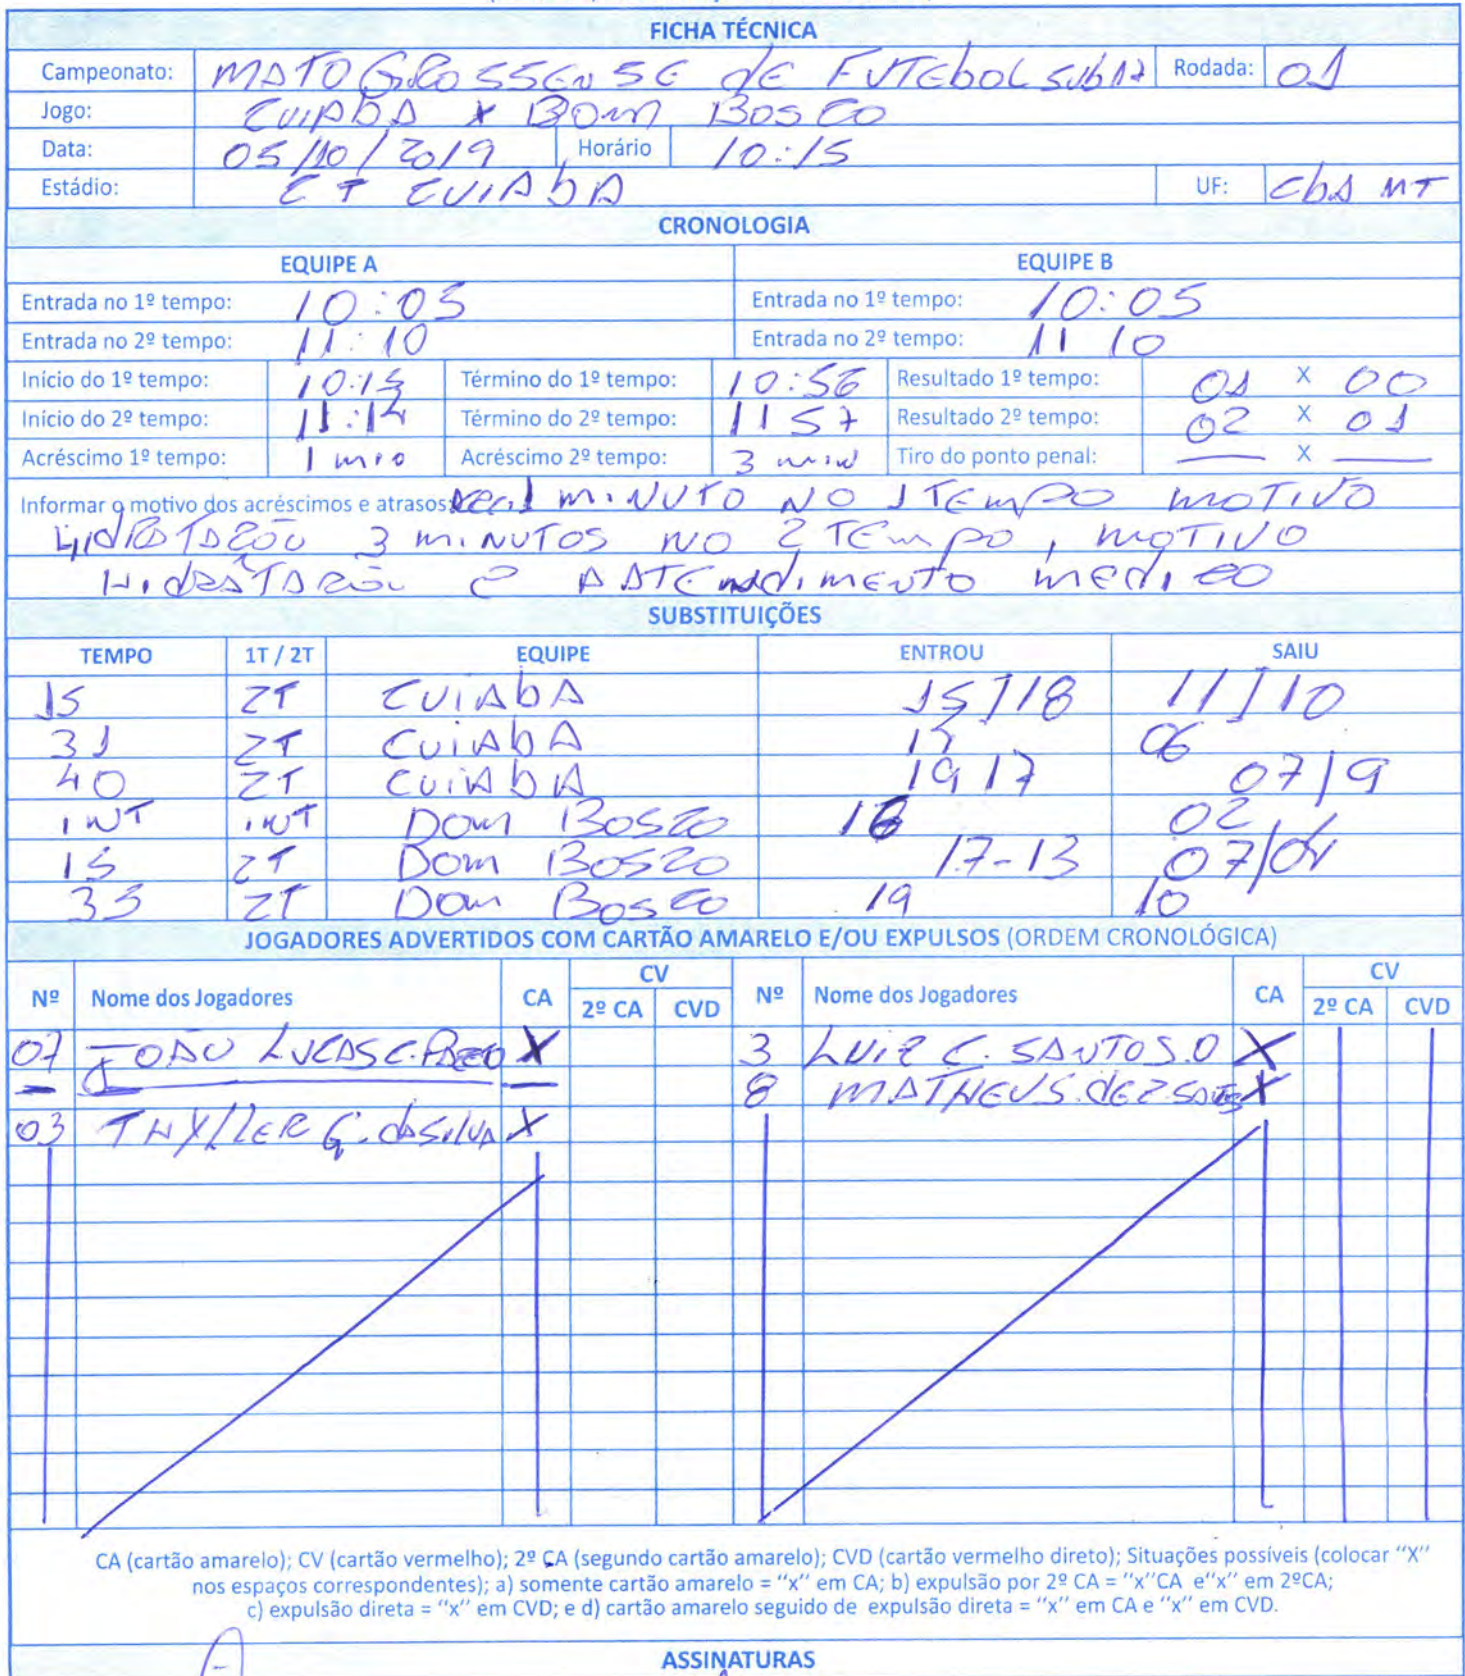 FICHA TÉCNICA
Campeonato: MATOGROSSENSE dE FUTEbOL SUb17 Rodada: 01
Jogo: CUIAbA X DOM BOSCO
Data: 05/10/2019 Horário 10:15
Estádio: CT CUIAbA UF: CbA MT
CRONOLOGIA
EQUIPE A EQUIPE B
Entrada no 1º tempo: 10:05 Entrada no 1º tempo: 10:05
Entrada no 2º tempo: 11:10 Entrada no 2º tempo: 11 10
Início do 1º tempo: 10:15 Término do 1º tempo: 10:56 Resultado 1º tempo: 01 X 00
Início do 2º tempo: 11:14 Término do 2º tempo: 11 57 Resultado 2º tempo: 02 X 01
Acréscimo 1º tempo: 1 min Acréscimo 2º tempo: 3 min Tiro do ponto penal: — X —
Informar o motivo dos acréscimos e atrasos: 1 MINUTO NO 1 TEMPO MOTIVO
HIdRATAÇÃO 3 MINUTOS NO 2 TEMPO, MOTIVO
HIdRATAÇÃO E AATENdIMENTO MEdICO
SUBSTITUIÇÕES
TEMPO 1T / 2T EQUIPE ENTROU SAIU
15 2T CUIAbA 15/18 11/10
31 2T CUIAbA 06
40 2T CUIAbA 19 17 07/9
INT INT DOM BOSCO 16 02
15 2T DOM BOSCO 17-13 07/04
35 2T DOM BOSCO 19 10
JOGADORES ADVERTIDOS COM CARTÃO AMARELO E/OU EXPULSOS (ORDEM CRONOLÓGICA)
CV CV
Nº Nome dos Jogadores CA 2º CA CVD Nº Nome dos Jogadores CA 2º CA CVD
07 JOÃO LUCAS C. X 3 LUIZ C. SANTOS.O X
8 MATHEUS. dE X
03 THYLLER G. dA SILVA X
CA (cartão amarelo); CV (cartão vermelho); 2º CA (segundo cartão amarelo); CVD (cartão vermelho direto); Situações possíveis (colocar "X"
nos espaços correspondentes); a) somente cartão amarelo = "x" em CA; b) expulsão por 2º CA = "x"CA e"x" em 2ºCA;
c) expulsão direta = "x" em CVD; e d) cartão amarelo seguido de expulsão direta = "x" em CA e "x" em CVD.
ASSINATURAS